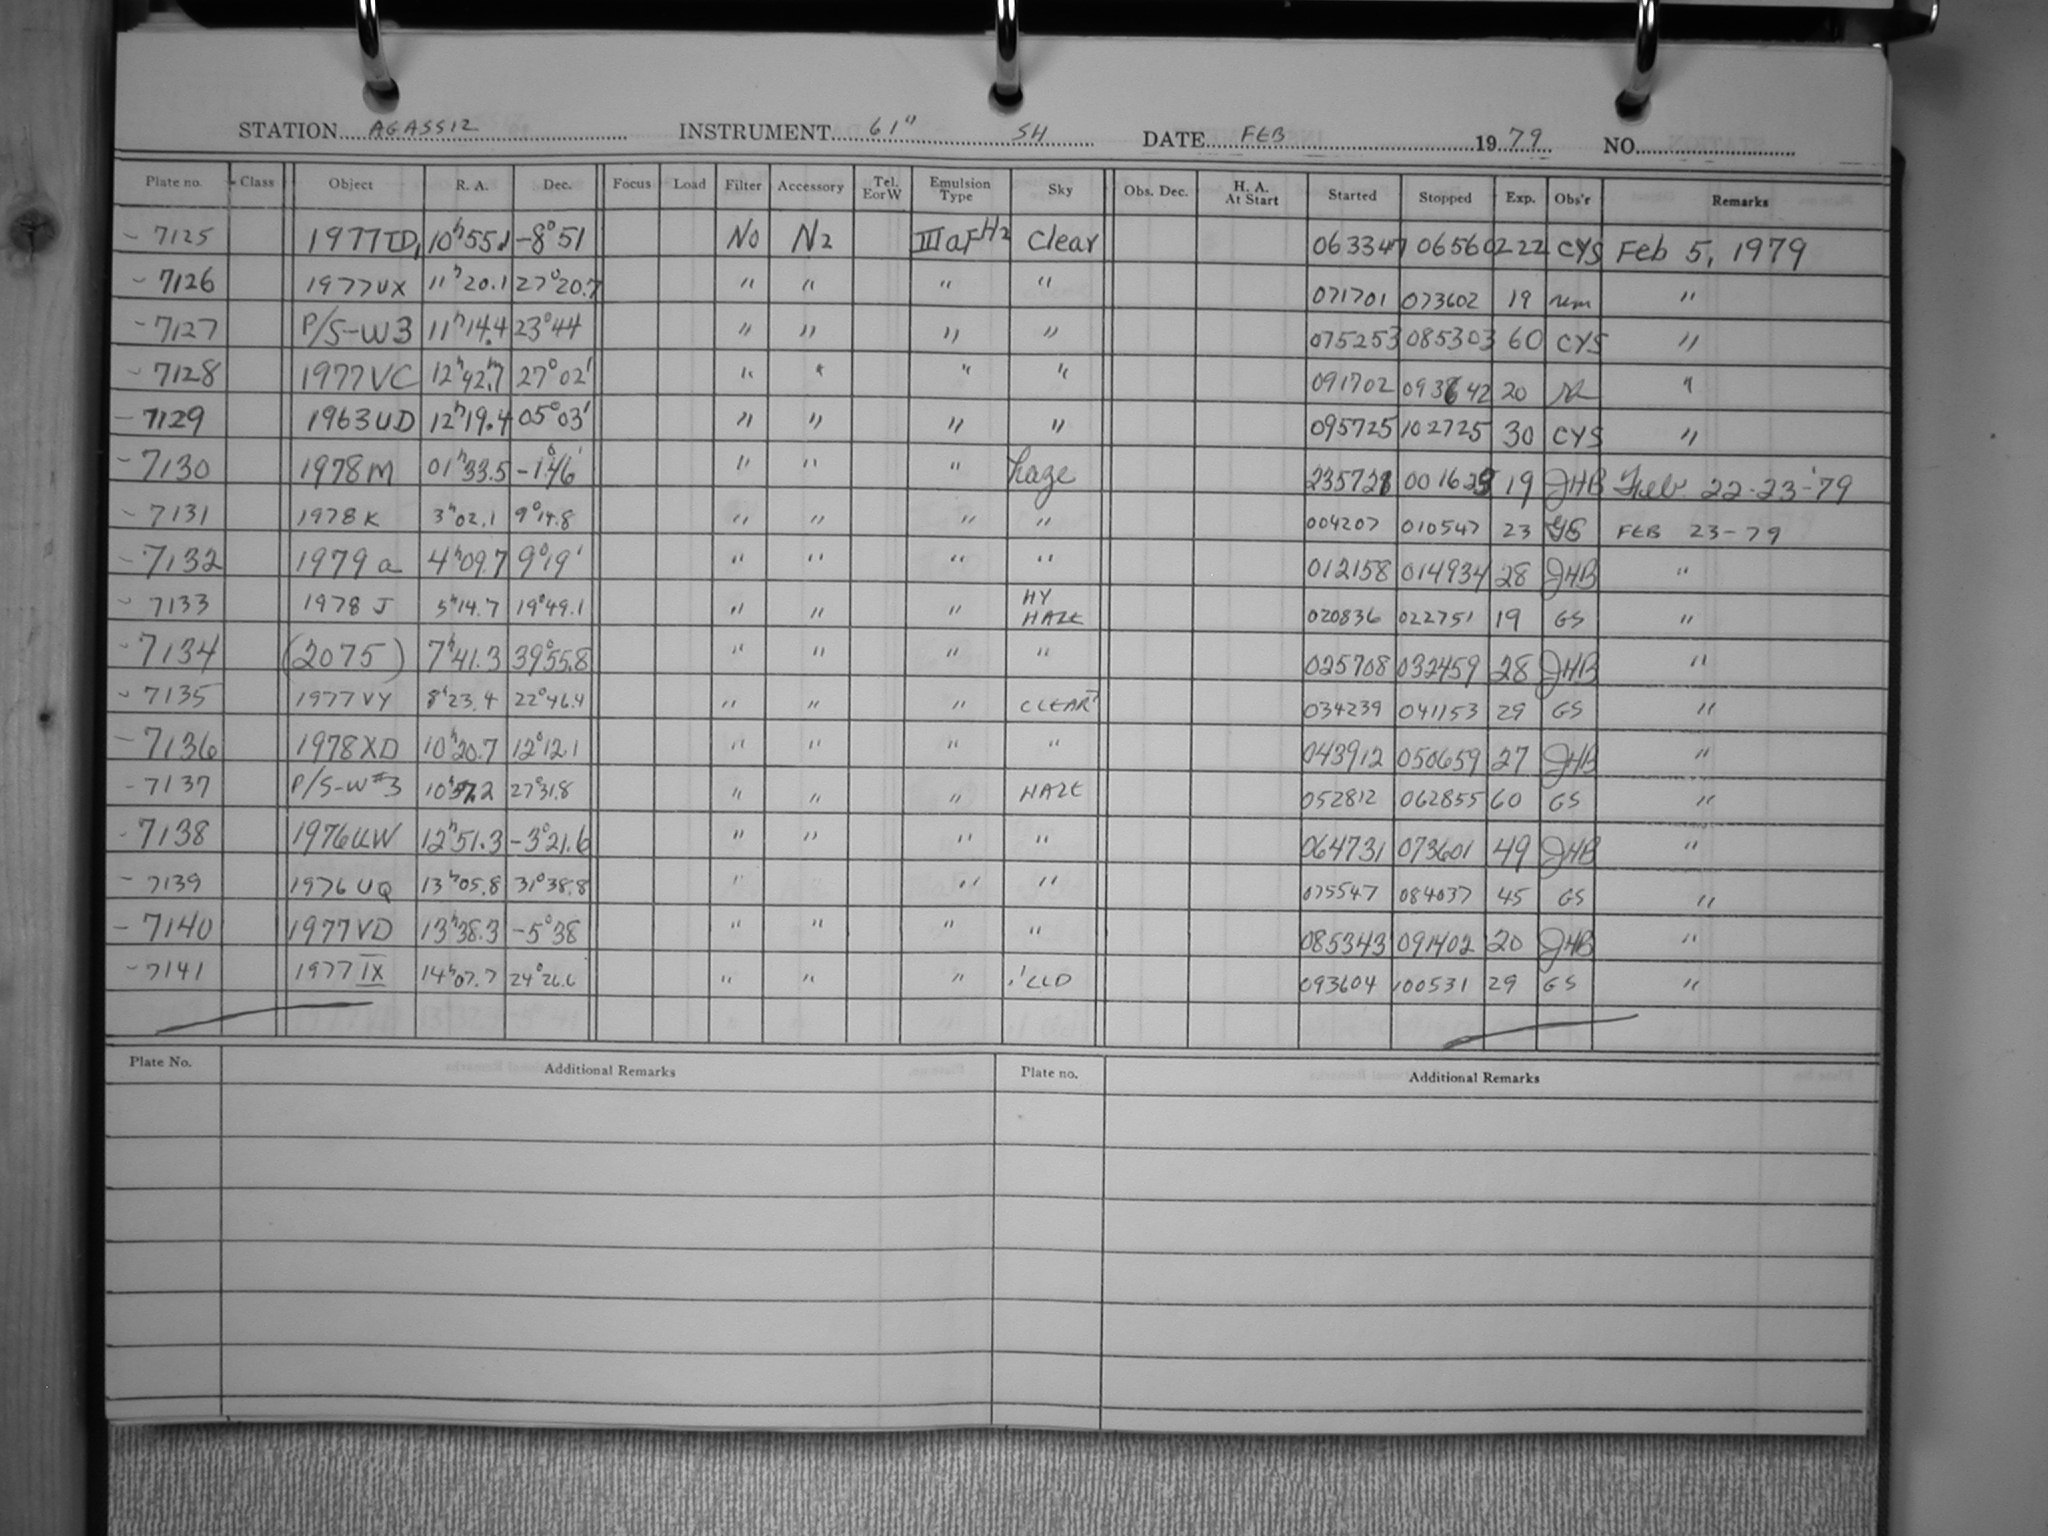 STATION AGASSIZ INSTRUMENT 61" SH DATE FEB 1979 NO.
Plate no. Class Object R. A. Dec. Focus Load Filter Accessory Tel. E or W Emulsion Type Sky Obs. Dec. H. A. At Start Started Stopped Exp. Obs'r Remarks
- 7125 1977TD, 10h55.1 -8°51 No N2 IIIaF H2 Clear 063347 065602 22 CYS Feb 5, 1979
- 7126 1977UX 11h20.1 27°20.7 " " " " 071701 073602 19 "
- 7127 P/S-W3 11h14.4 23°44 " " " " 075253 085303 60 CYS "
- 7128 1977VC 12h42.7 27°02' " " " " 091702 093642 20 "
- 7129 1963UD 12h19.4 05°03' " " " " 095725 102725 30 CYS "
- 7130 1978M 01h33.5 -1°46' " " " haze 235728 001625 19 JHB Feb 22-23-'79
- 7131 1978K 3h02.1 9°14.8 " " " " 004207 010547 23 GS FEB 23-79
- 7132 1979a 4h09.7 9°19' " " " " 012158 014934 28 JHB "
- 7133 1978 J 5h14.7 19°49.1 " " " HY HAZE 020836 022751 19 GS "
- 7134 (2075) 7h41.3 39°55.8 " " " " 025708 032459 28 JHB "
- 7135 1977VY 8h23.4 22°46.4 " " " CLEAR? 034239 041153 29 GS "
- 7136 1978XD 10h20.7 12°12.1 " " " " 043912 050659 27 JHB "
- 7137 P/S-W#3 10h57.2 27°31.8 " " " HAZE 052812 062855 60 GS "
- 7138 1976UW 12h51.3 -3°21.6 " " " " 064731 073601 49 JHB "
- 7139 1976UQ 13h05.8 31°38.8 " " " 075547 084037 45 GS "
- 7140 1977VD 13h38.3 -5°38 " " " " 085343 091402 20 JHB "
- 7141 1977 IX 14h07.7 24°26.6 " " " 'CLD 093604 100531 29 GS "
Plate No. Additional Remarks Plate no. Additional Remarks